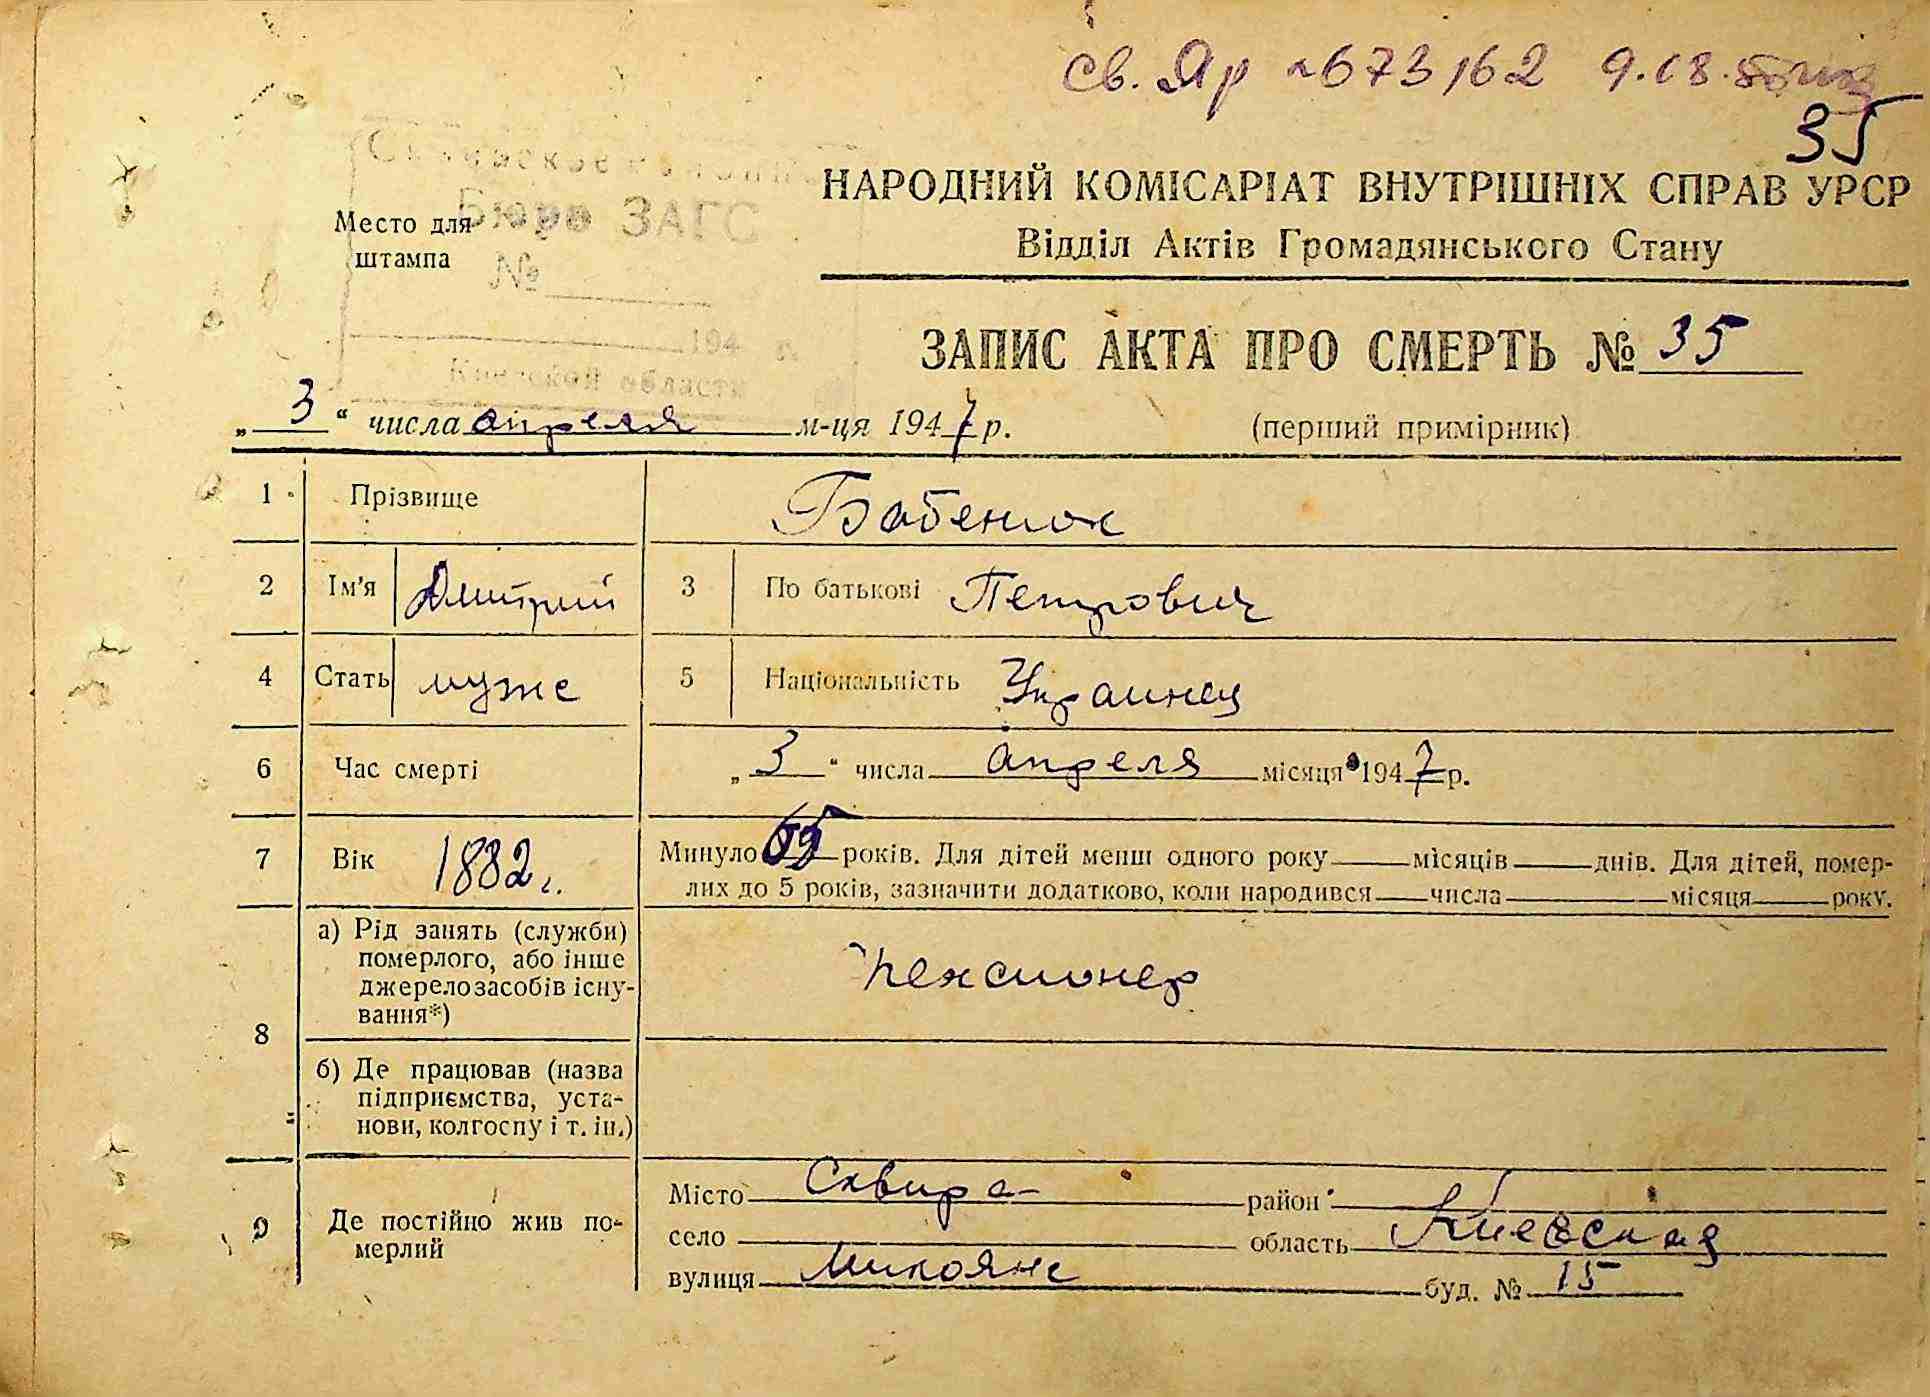 Св. Яр 673162 9.
35
НАРОДНИЙ КОМІСАРІАТ ВНУТРІШНІХ СПРАВ УРСР
Відділ Актів Громадянського Стану
Бюро ЗАГС
Место для
штампа
№
194 г.
Киевской области
ЗАПИС АКТА ПРО СМЕРТЬ № 35
„ 3 “ числа апреля м-ця 1947 р.
(перший примірник)
1 Прізвище Бабенюк
2 Ім'я Дмитрий 3 По батькові Петрович
4 Стать муже 5 Національність Украинец
6 Час смерті „ 3 “ числа апреля місяця 1947 р.
7 Вік 1882 г. Минуло 65 років. Для дітей менш одного року місяців днів. Для дітей, помер-
лих до 5 років, зазначити додатково, коли народився числа місяця року.
8
а) Рід занять (служби)
померлого, або інше
джерело засобів існу-
вання*)
пенсионер
б) Де працював (назва
підприємства, уста-
нови, колгоспу і т. ін.)
9 Де постійно жив по-
мерлий
Місто Сквира район
село область Киевская
вулиця Микояна буд. № 15